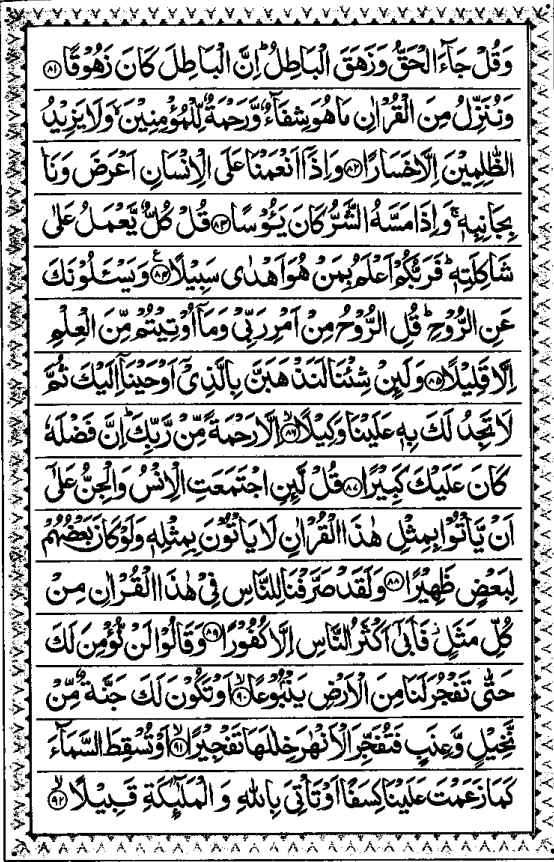 وَقُلْ جَآءَ الْحَقُّ وَزَهَقَ الْبَاطِلُ ؕ اِنَّ الْبَاطِلَ كَانَ زَهُوْقًا ﴿۸۱﴾
وَنُنَزِّلُ مِنَ الْقُرْاٰنِ مَا هُوَ شِفَآءٌ وَّرَحْمَةٌ لِّلْمُؤْمِنِيْنَ ۙ وَلَا يَزِيْدُ
الظّٰلِمِيْنَ اِلَّا خَسَارًا ﴿۸۲﴾ وَاِذَآ اَنْعَمْنَا عَلَى الْاِنْسَانِ اَعْرَضَ وَنَاٰ
بِجَانِبِهٖ ۚ وَاِذَا مَسَّهُ الشَّرُّ كَانَ يَـُٔوْسًا ﴿۸۳﴾ قُلْ كُلٌّ يَّعْمَلُ عَلٰى
شَاكِلَتِهٖ ؕ فَرَبُّكُمْ اَعْلَمُ بِمَنْ هُوَ اَهْدٰى سَبِيْلًا ﴿۸۴﴾ ع وَيَسْـَٔلُوْنَكَ
عَنِ الرُّوْحِ ؕ قُلِ الرُّوْحُ مِنْ اَمْرِ رَبِّيْ وَمَآ اُوْتِيْتُمْ مِّنَ الْعِلْمِ
اِلَّا قَلِيْلًا ﴿۸۵﴾ وَلَئِنْ شِئْنَا لَنَذْهَبَنَّ بِالَّذِيْٓ اَوْحَيْنَآ اِلَيْكَ ثُمَّ
لَا تَجِدُ لَكَ بِهٖ عَلَيْنَا وَكِيْلًا ﴿۸۶﴾ ۙ اِلَّا رَحْمَةً مِّنْ رَّبِّكَ ؕ اِنَّ فَضْلَهٗ
كَانَ عَلَيْكَ كَبِيْرًا ﴿۸۷﴾ قُلْ لَّئِنِ اجْتَمَعَتِ الْاِنْسُ وَالْجِنُّ عَلٰٓى
اَنْ يَّاْتُوْا بِمِثْلِ هٰذَا الْقُرْاٰنِ لَا يَاْتُوْنَ بِمِثْلِهٖ وَلَوْ كَانَ بَعْضُهُمْ
لِبَعْضٍ ظَهِيْرًا ﴿۸۸﴾ وَلَقَدْ صَرَّفْنَا لِلنَّاسِ فِيْ هٰذَا الْقُرْاٰنِ مِنْ
كُلِّ مَثَلٍ ؗ فَاَبٰٓى اَكْثَرُ النَّاسِ اِلَّا كُفُوْرًا ﴿۸۹﴾ وَقَالُوْا لَنْ نُّؤْمِنَ لَكَ
حَتّٰى تَفْجُرَ لَنَا مِنَ الْاَرْضِ يَنْۢبُوْعًا ﴿۹۰﴾ ۙ اَوْ تَكُوْنَ لَكَ جَنَّةٌ مِّنْ
نَّخِيْلٍ وَّعِنَبٍ فَتُفَجِّرَ الْاَنْهٰرَ خِلٰلَهَا تَفْجِيْرًا ﴿۹۱﴾ ۙ اَوْ تُسْقِطَ السَّمَآءَ
كَمَا زَعَمْتَ عَلَيْنَا كِسَفًا اَوْ تَاْتِيَ بِاللّٰهِ وَالْمَلٰٓئِكَةِ قَبِيْلًا ﴿۹۲﴾ ۙ